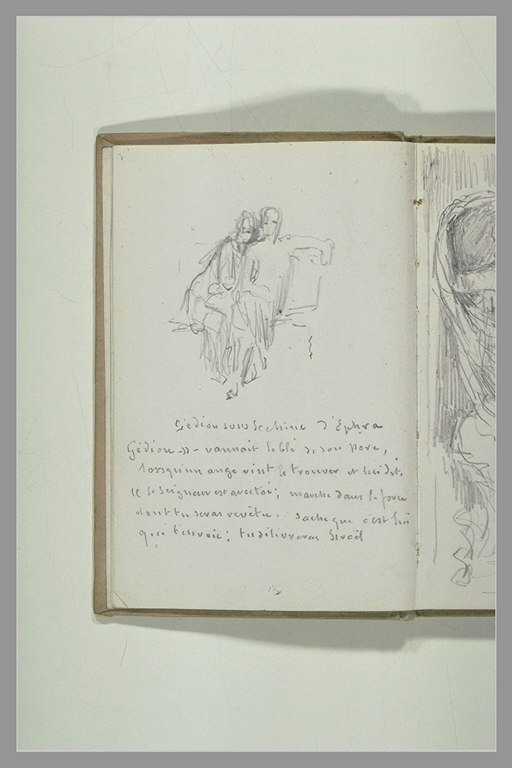 Gédéon sous le chêne d'Ephra
Gédéon - vannait le blé de son père,
lorsqu'un ange vint le trouver et lui dit,
" le Seigneur est avec toi; marche dans la force
dont tu seras revêtu. Sache que c'est lui
qui t'envoie; tu délivreras Israël